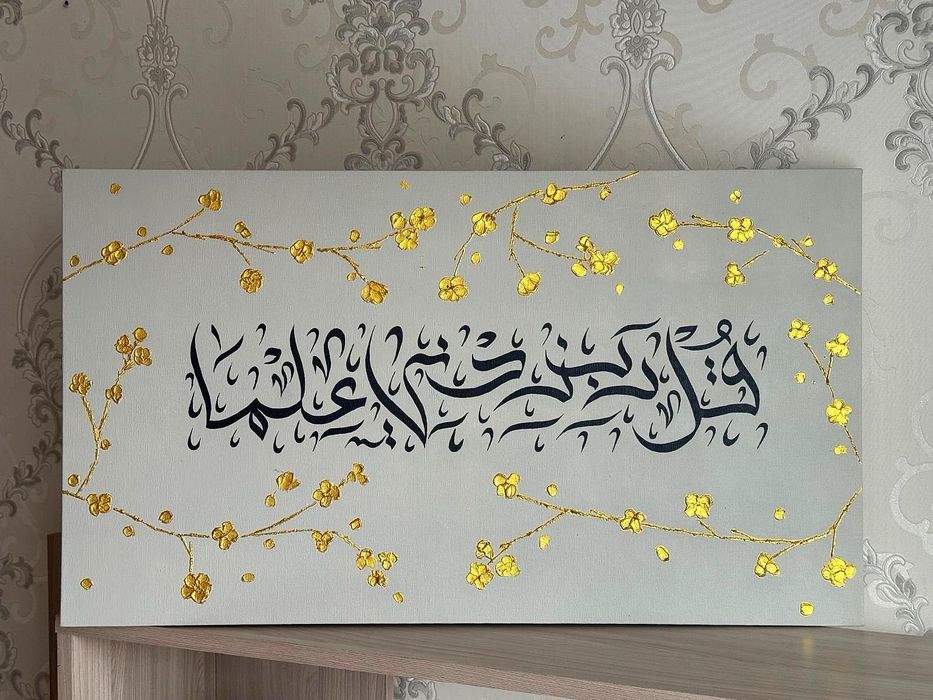 قُل رَب زدني علما